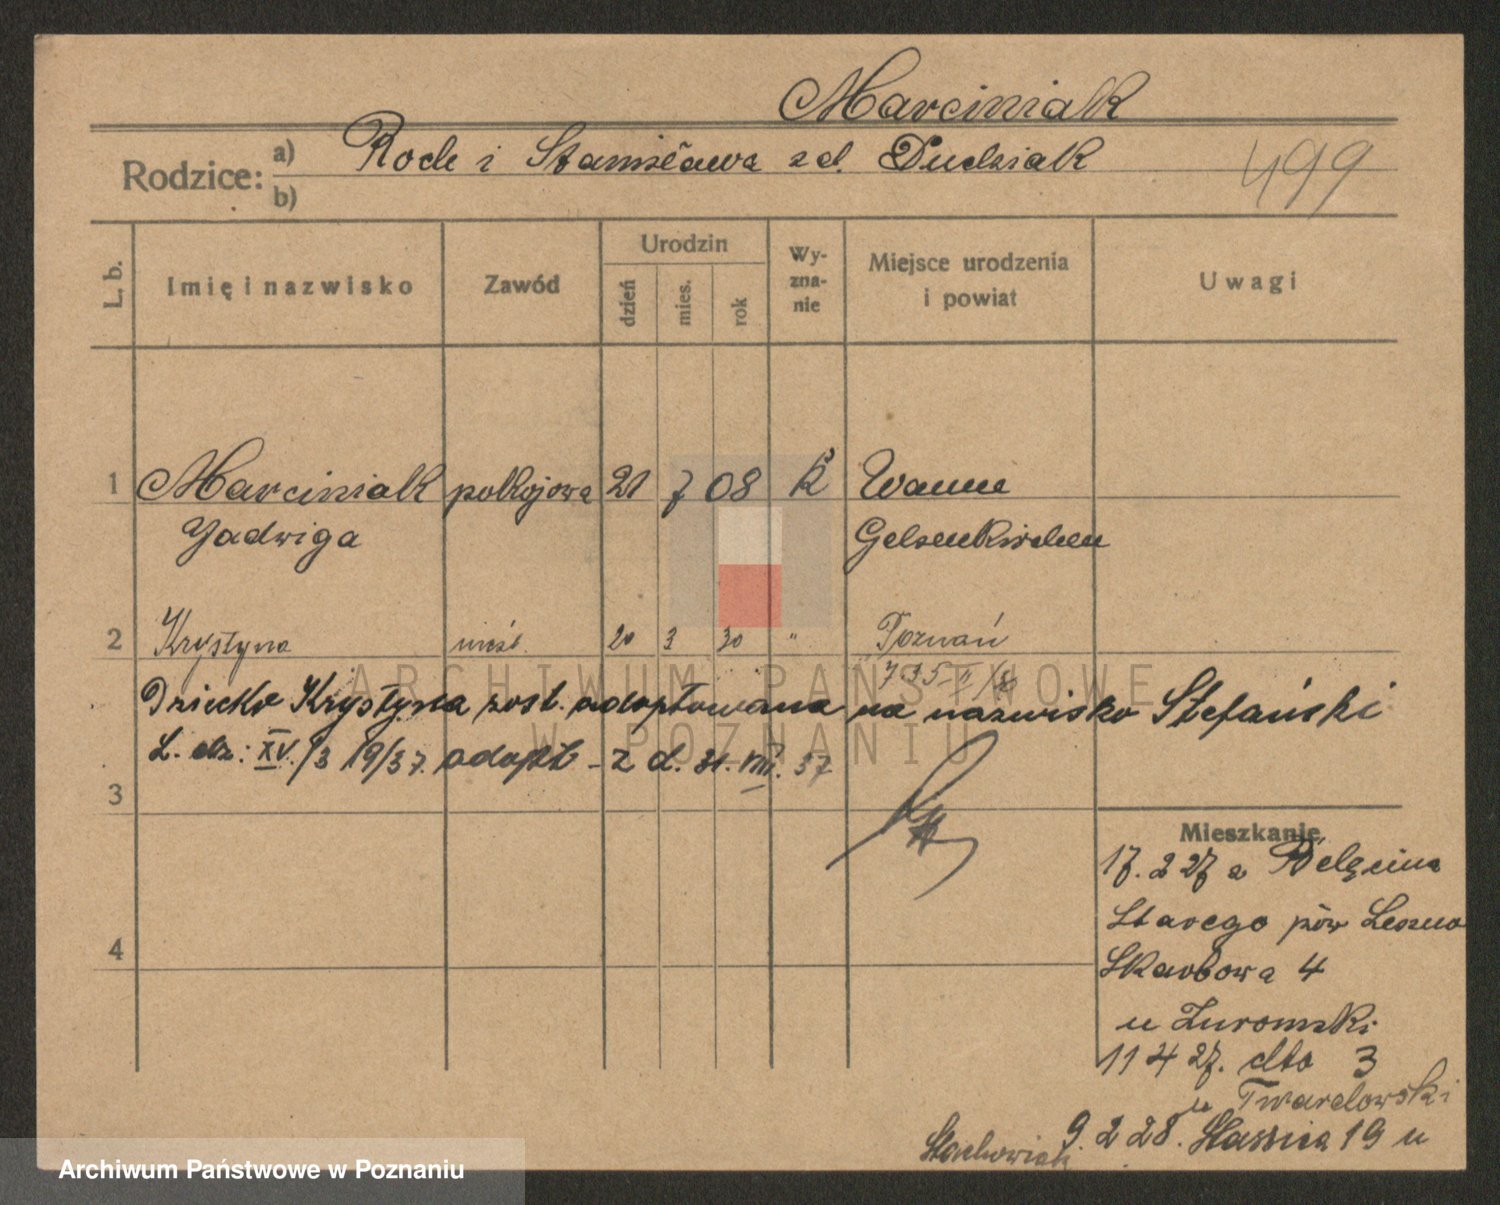 Marciniak
Rodzice: a) Roch i Stanisława z d. Dudziak
b)
499
L. b. Imię i nazwisko Zawód Urodzin dzień mies. rok Wy-zna-nie Miejsce urodzenia i powiat Uwagi
1 Marciniak pokojowa 21 7 08 k Wanne
Jadwiga Gelsenkirchen
2 Krystyna nieśl. 20 3 30 " Poznań
795 II/
Dziecko Krystyna zost. adoptowana na nazwisko Stefański
L. dz: XV./3 19/37. adopt - z d. 31. VIII. 37
3
Mieszkanie
17. 2 27 z Bełęcina
Starego pow Leszno
4
Skarbowa 4
u Żuromski
11 4 27. dto 3
u Twardowski
9. 2 28. Staszica 19 u
Stachowiak
ARCHIWUM PAŃSTWOWE
W POZNANIU
Archiwum Państwowe w Poznaniu